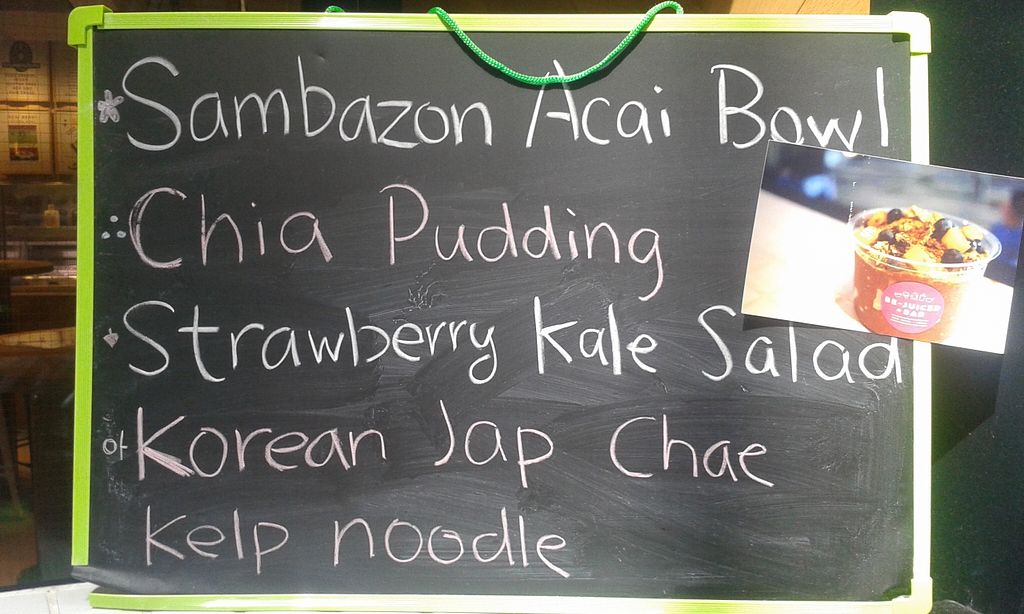 Sambazon Acai Bowl
Chia Pudding
Strawberry Kale Salad
Korean Jap Chae
kelp noodle
BE-JUICED
BAR